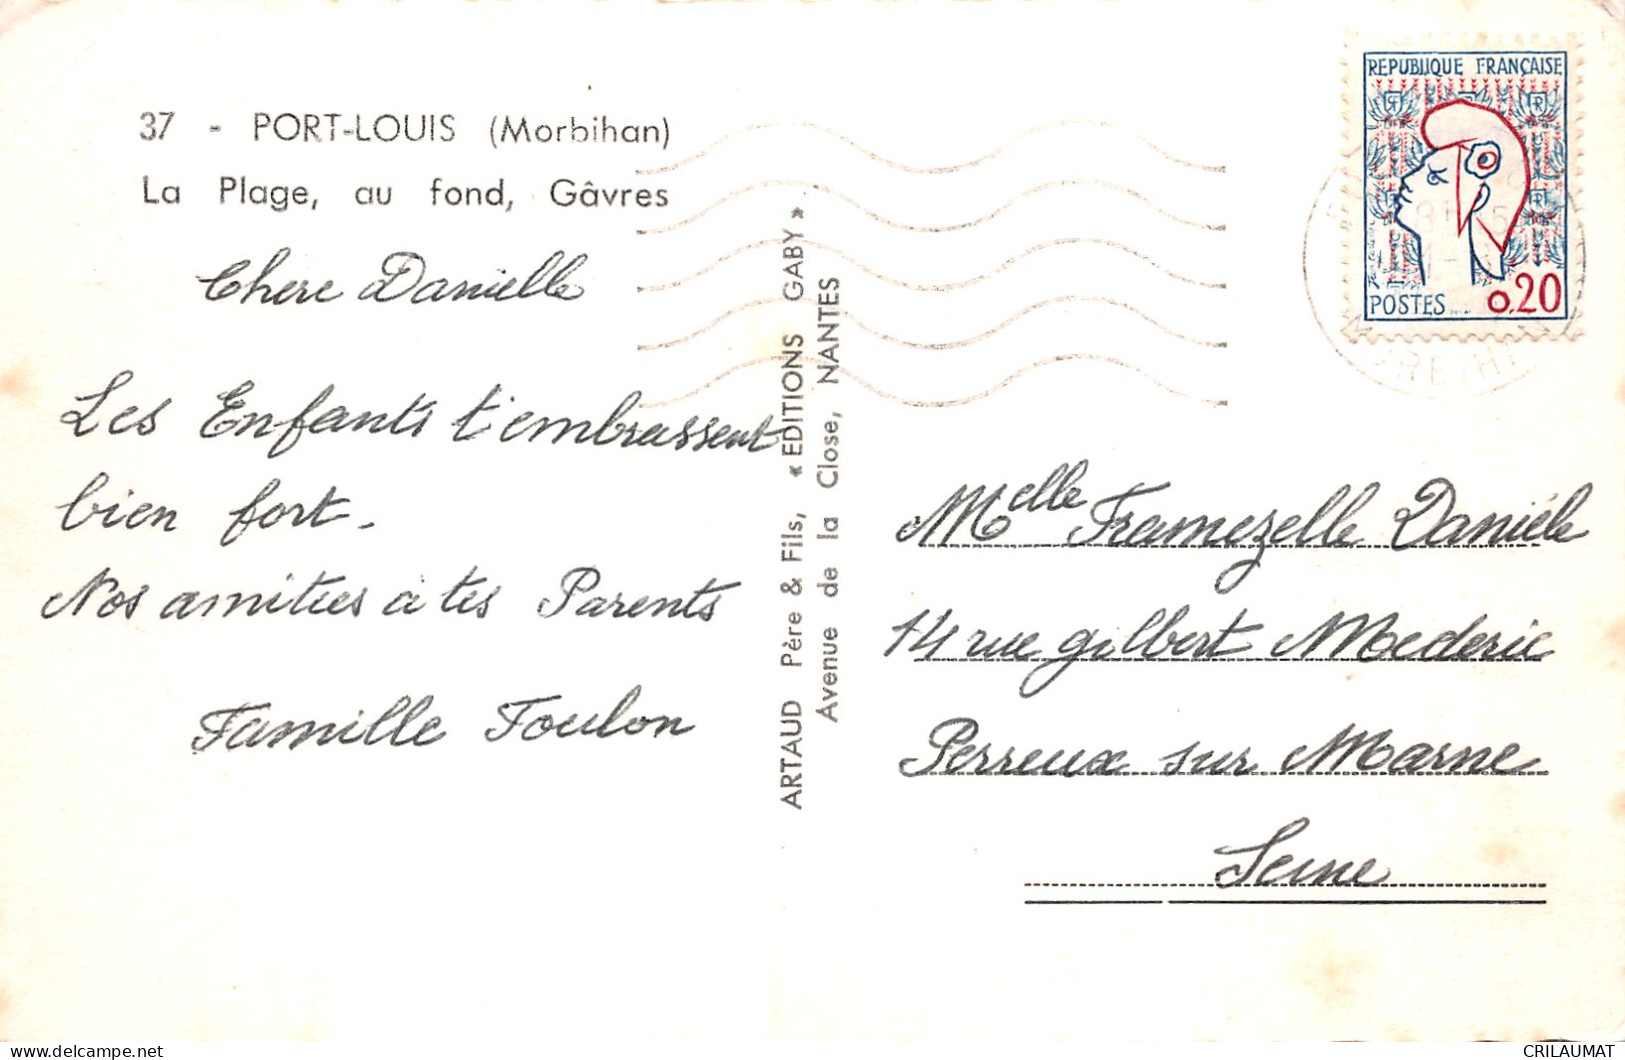 37 - PORT-LOUIS (Morbihan)
La Plage, au fond, Gâvres
Chere Danielle
Les Enfants t'embrassent
bien fort.
Nos amities a tes Parents
Famille Foulon
ARTAUD Père & Fils, « EDITIONS GABY »
Avenue de la Close, NANTES
REPUBLIQUE FRANÇAISE
POSTES 0,20
Melle Framezelle Danièle
14 rue gilbert Mederic
Perreux sur Marne
Seine
delcampe.net
CRILAUMAT